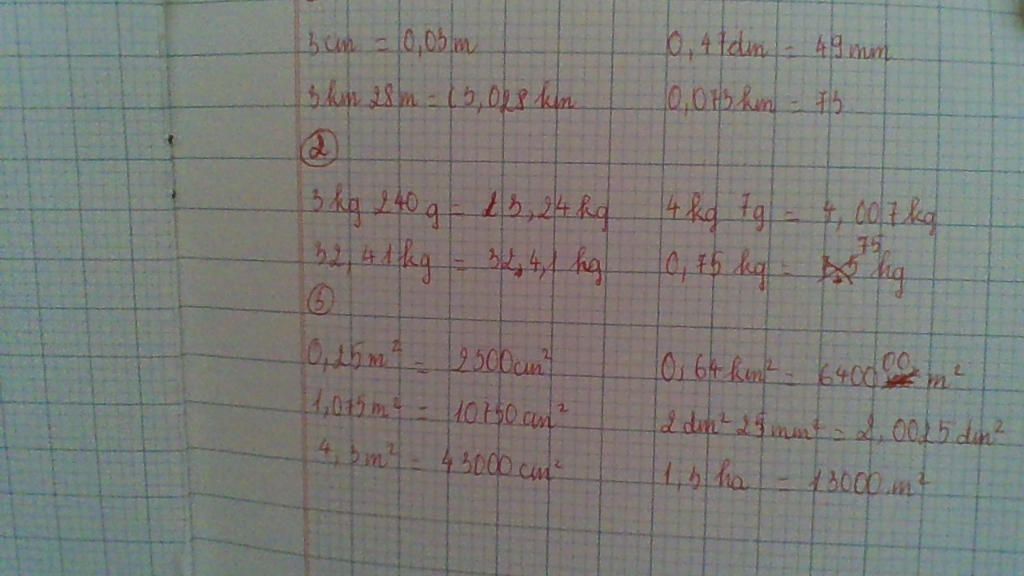 3cm = 0,03m 0,47dm = 49mm
3km 28m = 13,028km 0,073km = 73
2
3kg 240g = 13,24kg 4kg 7g = 4,007kg
32,41kg = 32,4,1 kg 0,75 kg = 75 kg
3
0,25m² = 2500cm² 0,64km² = 640000 m²
1,075m² = 10750cm² 2dm² 25mm² = 2,0025dm²
4,3m² = 43000cm² 1,3 ha = 13000 m²